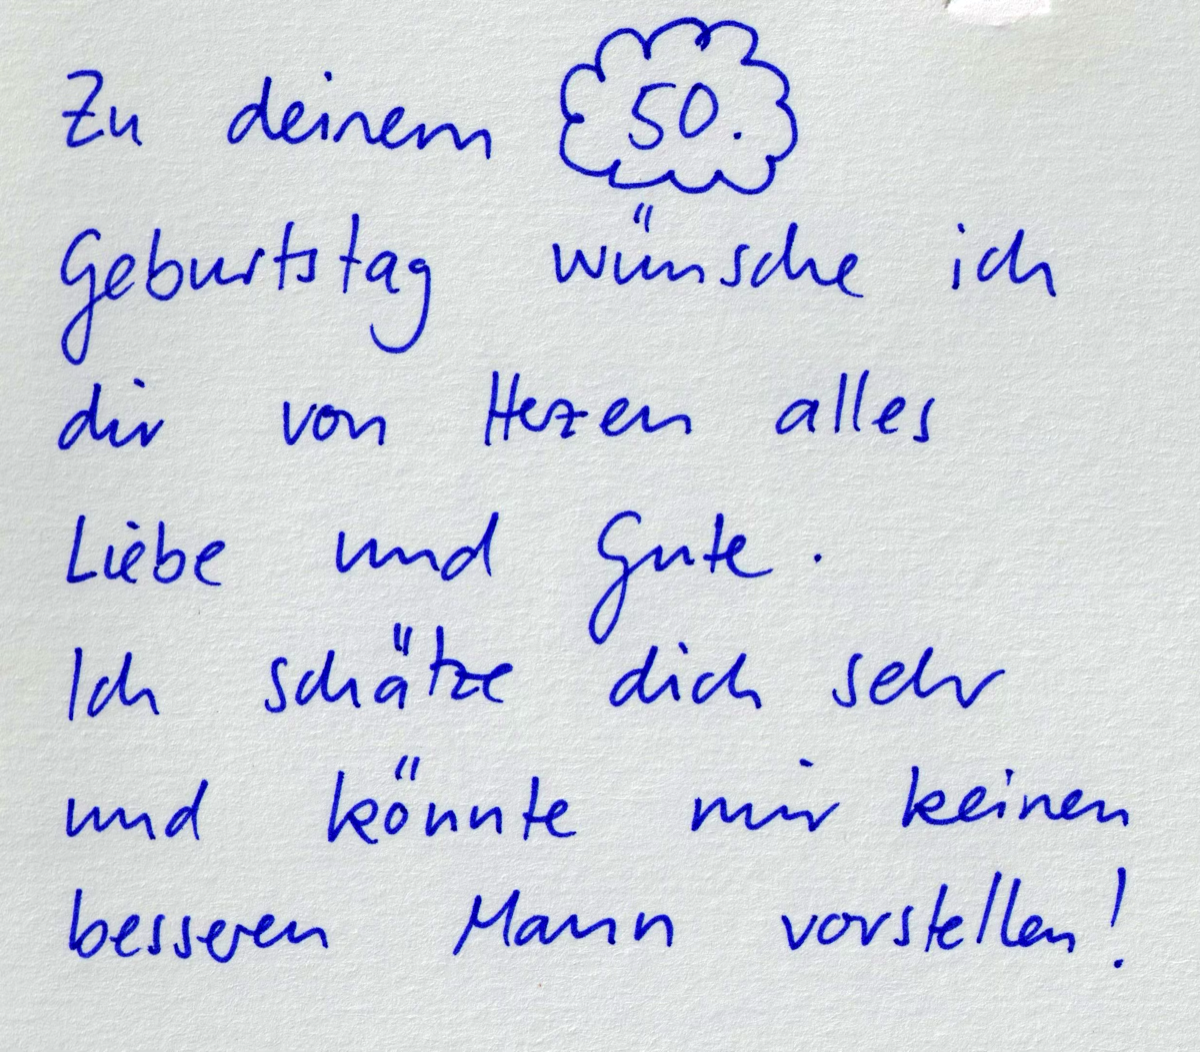 Zu deinem 50.
Geburtstag wünsche ich
dir von Herzen alles
Liebe und Gute.
Ich schätze dich sehr
und könnte mir keinen
besseren Mann vorstellen!